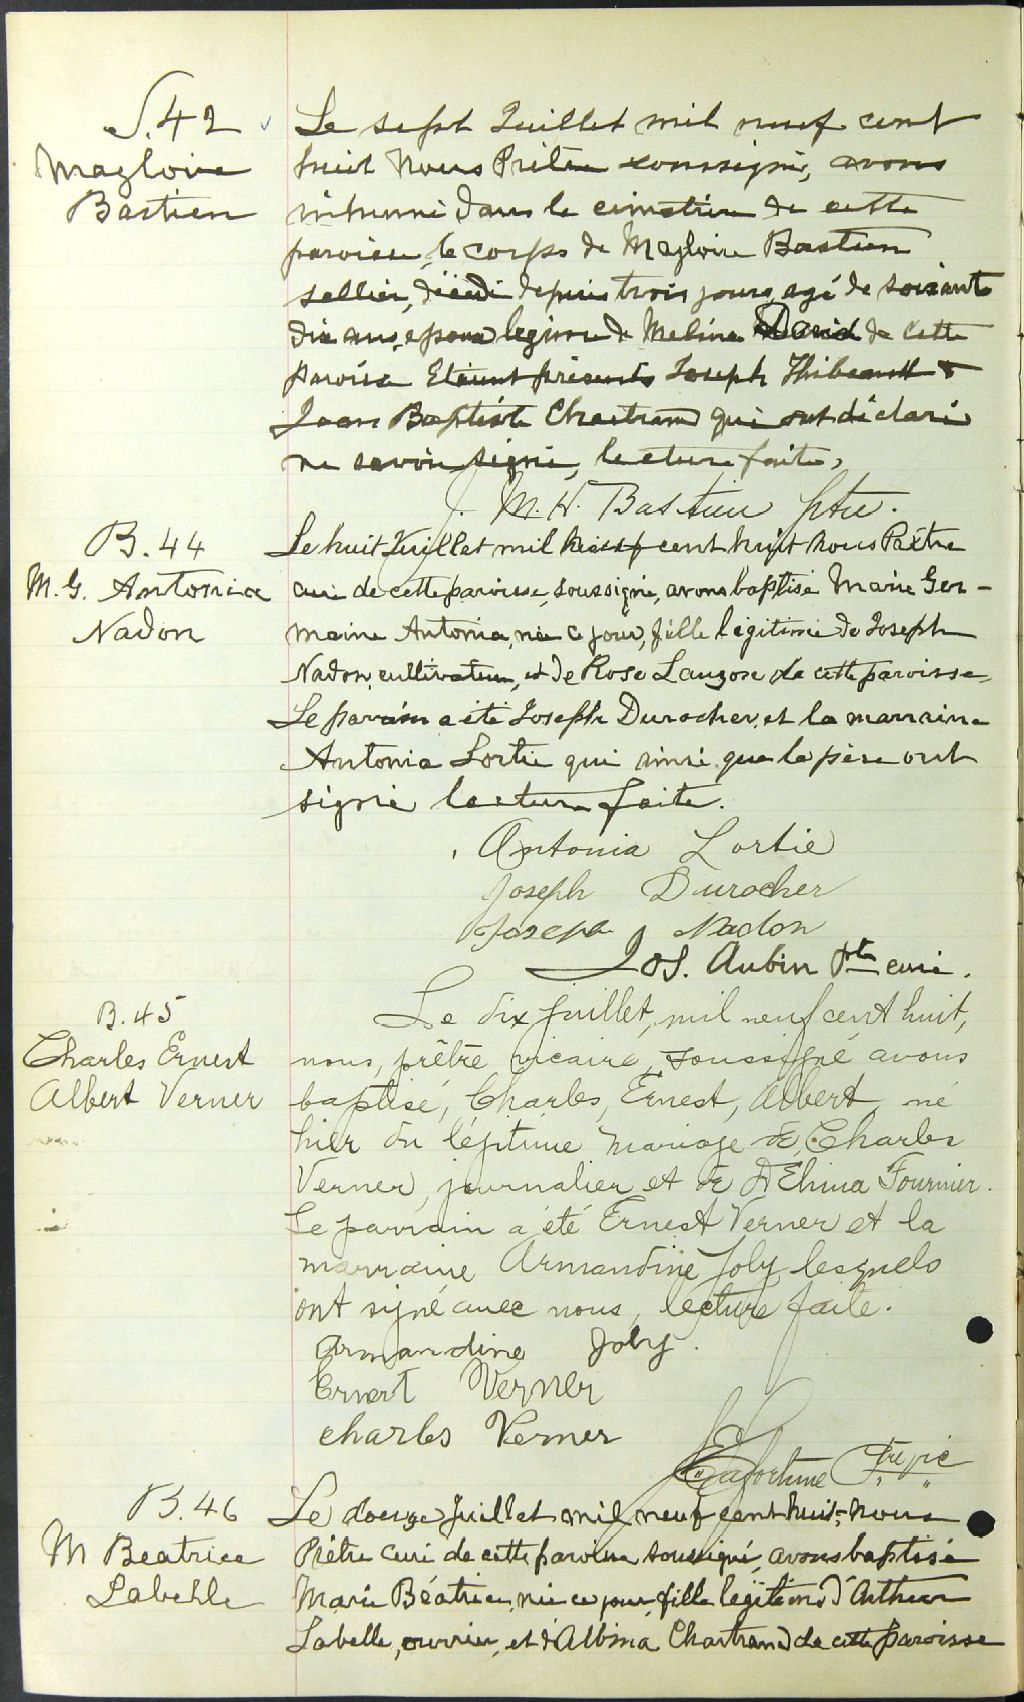 S. 42
Magloire
Bastien
Le sept Juillet mil neuf cent
huit Nous Prêtre soussigné, avons
inhumé dans le cimetière de cette
paroisse, le corps de Magloire Bastien
sellier, décédé depuis trois jours, agé de soixante
dix ans, epoux legime de Melina David de cette
Paroisse Etaient présents Joseph Thibeault &
Jean Baptiste Chartrand qui ont déclaré
ne savoir signé, lecture faite,
J. M. H. Bastien Ptre.
B. 44
M. G. Antonia
Nadon
Le huit Juillet mil neuf cent huit Nous Prêtre
curé de cette paroisse, soussigné, avons baptisé Marie Ger-
maine Antonia, née ce jour, fille légitime de Joseph
Nadon, cultivateur, et de Rose Lauzon de cette paroisse,
Le parrain a été Joseph Durocher, et la marraine
Antonia Lortie qui ainsi que le père ont
signé lecture faite.
Antonia Lortie
Joseph Durocher
Joseph Nadon
Jos. Aubin Ptre curé.
B. 45
Charles Ernest
Albert Verner
Le dix juillet, mil neuf cent huit,
nous, prêtre vicaire, soussigné avons
baptisé, Charles, Ernest, Albert, né
hier du légitime mariage de Charles
Verner, journalier et de Fournier.
Le parrain a été Ernest Verner et la
marraine Armandine Joly lesquels
ont signé avec nous, lecture faite.
Armandine Joly.
Ernert Verner
Charles Verner
Lafortune Ptre vic
B. 46
M Beatrice
Labelle
Le douze Juillet mil neuf cent huit, nous
Prêtre curé de cette paroisse soussigné, avons baptisé
Marie Béatrice, née ce jour, fille légitime d'Arthur
Labelle, ouvrier, et d'Albina Chartrand de cette paroisse